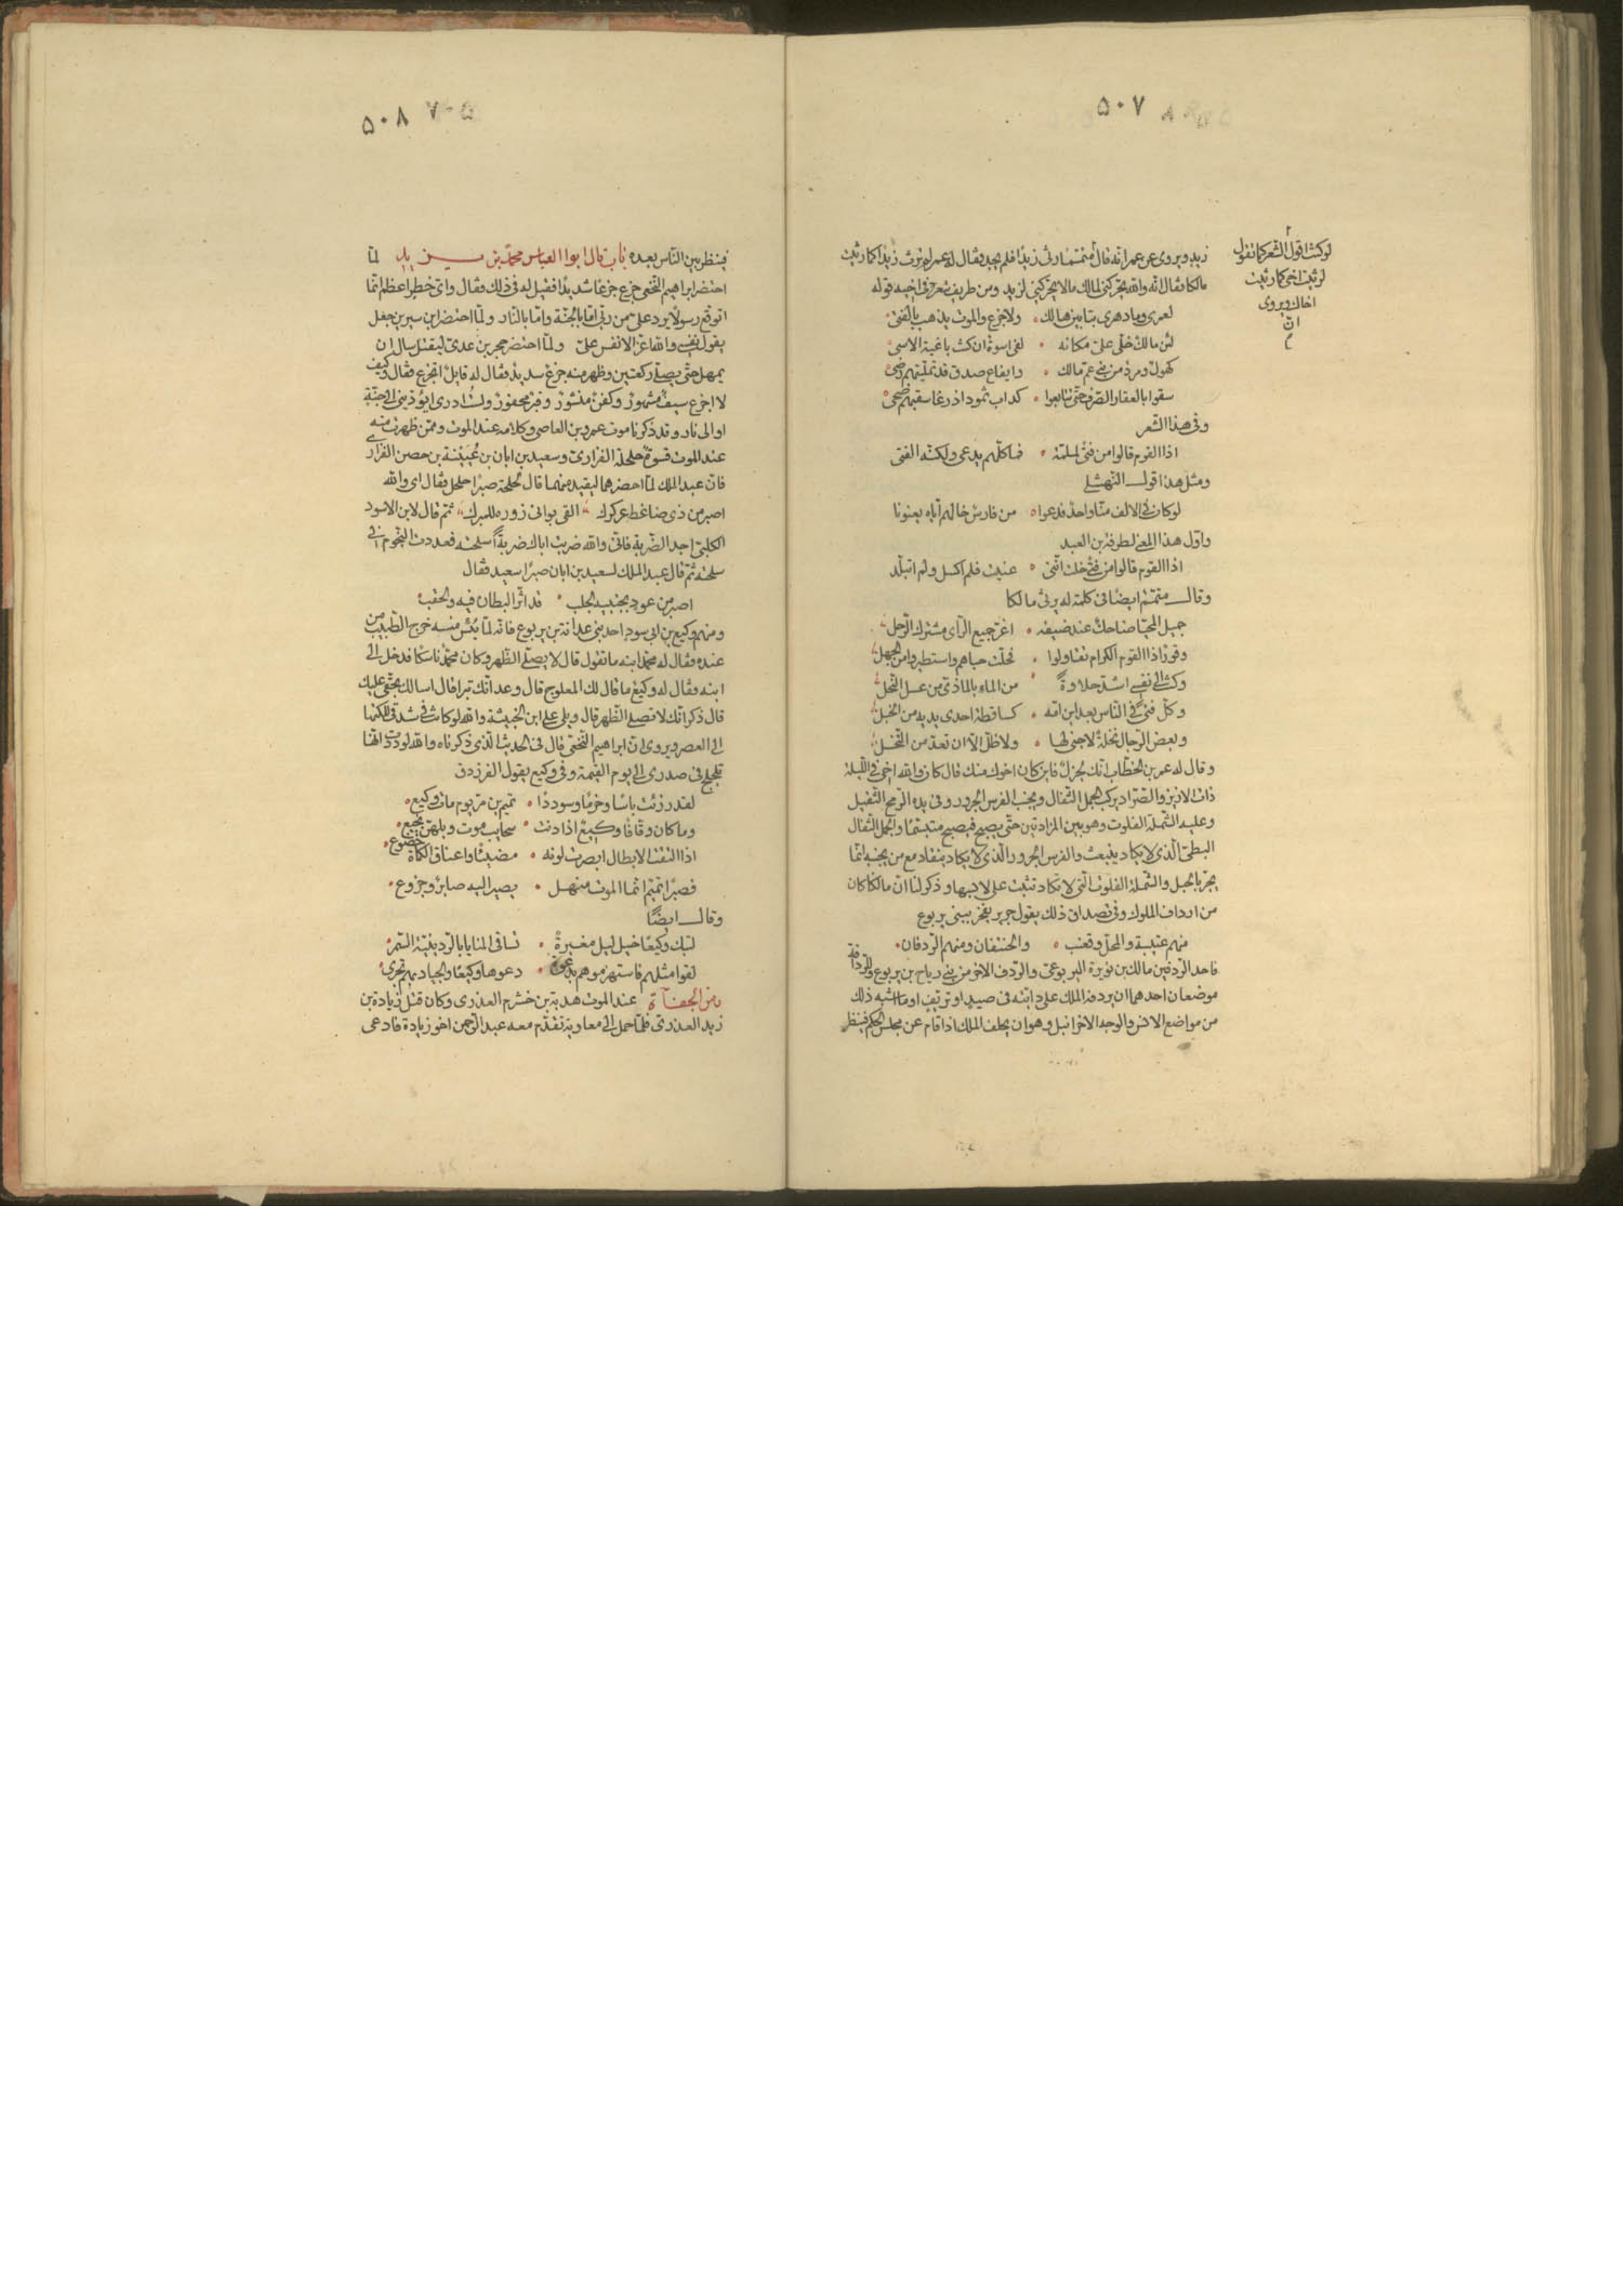 ٥٠٧
لو كنت اقول الشعر كما تقول
لرثيت اخى كما رثيت
اخاك ويروى
ان
م
زيد ويروى عن عمر انه قال لمتمم ارث زيدا فلم يجد فقال له عمر لم ترث زيدا كما رثيت
مالكا فقال انّه والله يحرّكنى لمالك ما لا يحرّكنى لزيد ومن طريف شعره فى اخيه قوله
لعمرى وما دهرى بتأبين هالك ولا جزع والموت يذهب بالفتى
لئن مالك خلّى علىّ مكانه لفى اسوة ان كنت باغية الاسى
كهول ومرد من بنى عمّ مالك وايفاع صدق قد تملّيتهم رضى
سقوا بالعقار الصرف حتى تتابعوا كداب ثمود اذ رغا سقبهم ضحى
وفى هذا الشعر
اذا القوم قالوا من فتى لملمّة فما كلّهم يدعى ولكنّه الفتى
ومثل هذا قول النهشلى
لو كان فى الالف منّا واحد فدعوا من فارس خالهم اياه يعنونا
واوّل هذا المعنى لطرفة بن العبد
اذا القوم قالوا من فتى خلت انّنى عنيت فلم اكسل ولم اتبلّد
وقال متمّم ايضا فى كلمة له يرثى مالكا
جميل المحيّا ضاحك عند ضيفه اغرّ جميع الرّأى مشترك الرّحل
وقور اذا القوم الكرام تقاولوا فحلّت حباهم واستطيروا من الجهل
وكنت الى نفسى اشدّ حلاوة من الماء بالماذىّ من عسل النّحل
وكلّ فتى فى النّاس بعد ابن امّه كساقطة احدى يديه من الخبل
وبعض الرّجال نخلة لا جنى لها ولا ظلّ الّا ان تعدّ من النّخل
وقال له عمر بن الخطّاب انّك لجزل فاين كان اخوك منك فقال كان والله اخى فى اللّيلة
ذات الازيز والصّرّاد يركب الجمل الثّفال ويجنب الفرس الجرور وفى يده الرّمح الثّقيل
وعليه الشّملة الفلوت وهو بين المزادتين حتّى يصبح فيصبح متبسّما والجمل الثفال
البطىّ الّذى لا يكاد ينبعث والفرس الجرور الّذى لا يكاد ينقاد مع من يجنبه انّما
يجرّ بالحبل والشّملة الفلوت الّتى لا تكاد تثبت على لابسها وذكر لنا انّ مالكا كان
من ارداف الملوك وفى تصداق ذلك يقول جرير يفخر ببنى يربوع
منهم عتيبة والمحلّ وقعنب والحنتفان ومنهم الرّدفان
فاحد الرّدفين مالك بن نويرة اليربوعىّ والرّدف الاخر من بنى رياح بن يربوع وللرّدافة
موضعان احدهما ان يردفه الملك على دابّته فى صيد او تريّف او ما اشبه ذلك
من مواضع الانس والوجه الاخر انبل وهو ان يخلف الملك اذا قام عن مجلس الحكم فينظر
٥٠٨
فينظر بين النّاس بعده باب قال ابوا العبّاس محمّد بن يزيد لمّا
احتضر ابراهيم النّخعى جزع جزعا شديدا فقيل له فى ذلك فقال واىّ خطر اعظم انّما
اتوقّع رسولا يرد علىّ من ربّى امّا بالجنّة وامّا بالنّار ولمّا احتضر ابن سيرين جعل
يقول نفسى والله اعزّ الانفس علىّ ولمّا احتضر حجر بن عدىّ ليقتل سال ان
يمهل حتّى يصلّى ركعتين وظهر منه جزع شديد فقال له قايل اتجزع فقال وكيف
لا اجزع سيف مشهور وكفن منشور وقبر محفور ولست ادرى ايؤذينى الى جنّة
او الى نار وقد ذكرنا موت عمرو بن العاصى وكلامه عند الموت وممّن ظهرت منه
عند الموت قسوة حلحلة الفزارىّ وسعيد بن ابان بن عيينة بن حصن الفزارى
فانّ عبد الملك لمّا احضرهما ليقيد منهما قال لحلحلة صبرا حلحل فقال اى والله
اصبر من ذى ضاغط عركرك القى بوانى زوره للمبرك ثمّ قال لابن الاسود
الكلبىّ اجد الضّربة فانّى والله ضربت اباك ضربة اسلحته فعددت النّجوم فى
سلحته ثمّ قال عبد الملك لسعيد بن ابان صبرا سعيد فقال
اصبر من عود بجنبيه الجلب قد اثّر البطان فيه والحقب
ومنهم وكيع بن ابى سود احد بنى غدانة بن يربوع فانّه لمّا يئس منه خرج الطّبيب من
عنده فقال له محمّد ابنه ما تقول قال لا يصلّى الظّهر وكان محمّد ناسكا فدخل الى
ابيه فقال له وكيع ما قال لك المعلوج قال وعد انّك تبرا قال اسالك بحقّى عليك
قال ذكر انّك لا تصلّى الظّهر قال ويلى على ابن الخبيثة والله لو كانت فى شدقى للكتها
الى العصر ويروى انّ ابراهيم النّخعىّ قال فى الحديث الّذى ذكرناه والله لوددت انّها
تلجلج فى صدرى الى يوم القيمة وفى وكيع يقول الفرزدق
لقد رزئت باسا وحزما وسوددا تميم بن مرّ يوم مات وكيع
وما كان وقّافا وكيع اذا دنت سحايب موت وبلهنّ نجيع
اذا التقت الابطال ابصرت لونه مضيئا واعناق الكماة خضوع
فصبرا تميم انّما الموت منهل يصير اليه صابر وجزوع
وقال ايضًا
لتبك وكيعا خيل ليل مغيرة تساقى المنايا بالرّدينيّة السّمر
لقوا مثلهم فاستهزموهم بدعوة دعوها وكيعا والجياد بهم تجرى
ومن الجفاة عند الموت هدبة بن خشرم العذرى وكان قتل زيادة بن
زيد العذرىّ فلمّا حمل الى معاوية تقدّم معه عبد الرّحمن اخو زيادة فادعى